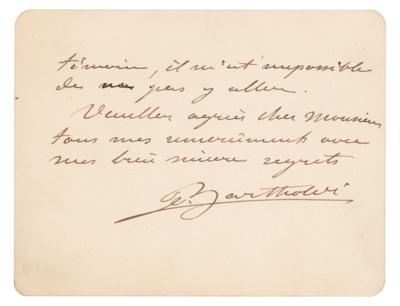 témoin, il m'est impossible
de ne pas y aller.
Veuillez agréer cher Monsieur
tous mes remerciements avec
mes bien sincères regrets
Bartholdi